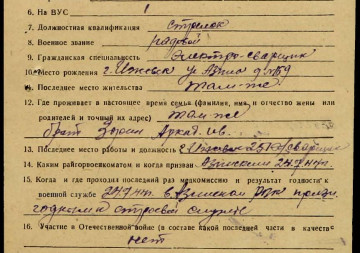 6. На ВУС 1
7. Должностная квалификация стрелок
8. Военное звание рядовой
9. Гражданская специальность Электро-сварщик
10. Место рождения г. Ижевск ул. д. №59
11. Последнее место жительства там-же
12. Где проживает в настоящее время семья (фамилия, имя и отчество жены или
родителей и точный их адрес) там же
брат Аркад. Ив.
13. Последнее место работы и должность г. Ижевск сварщик
14. Каким райгорвоенкоматом и когда призван 24.7.41г.
15. Когда и где проходил последний раз медкомиссию и результат годности к
военной службе 24.7.41г. в РВК призн.
годным к строевой службе
16. Участие в Отечественной войне (в составе какой последней части и в качестве
нет